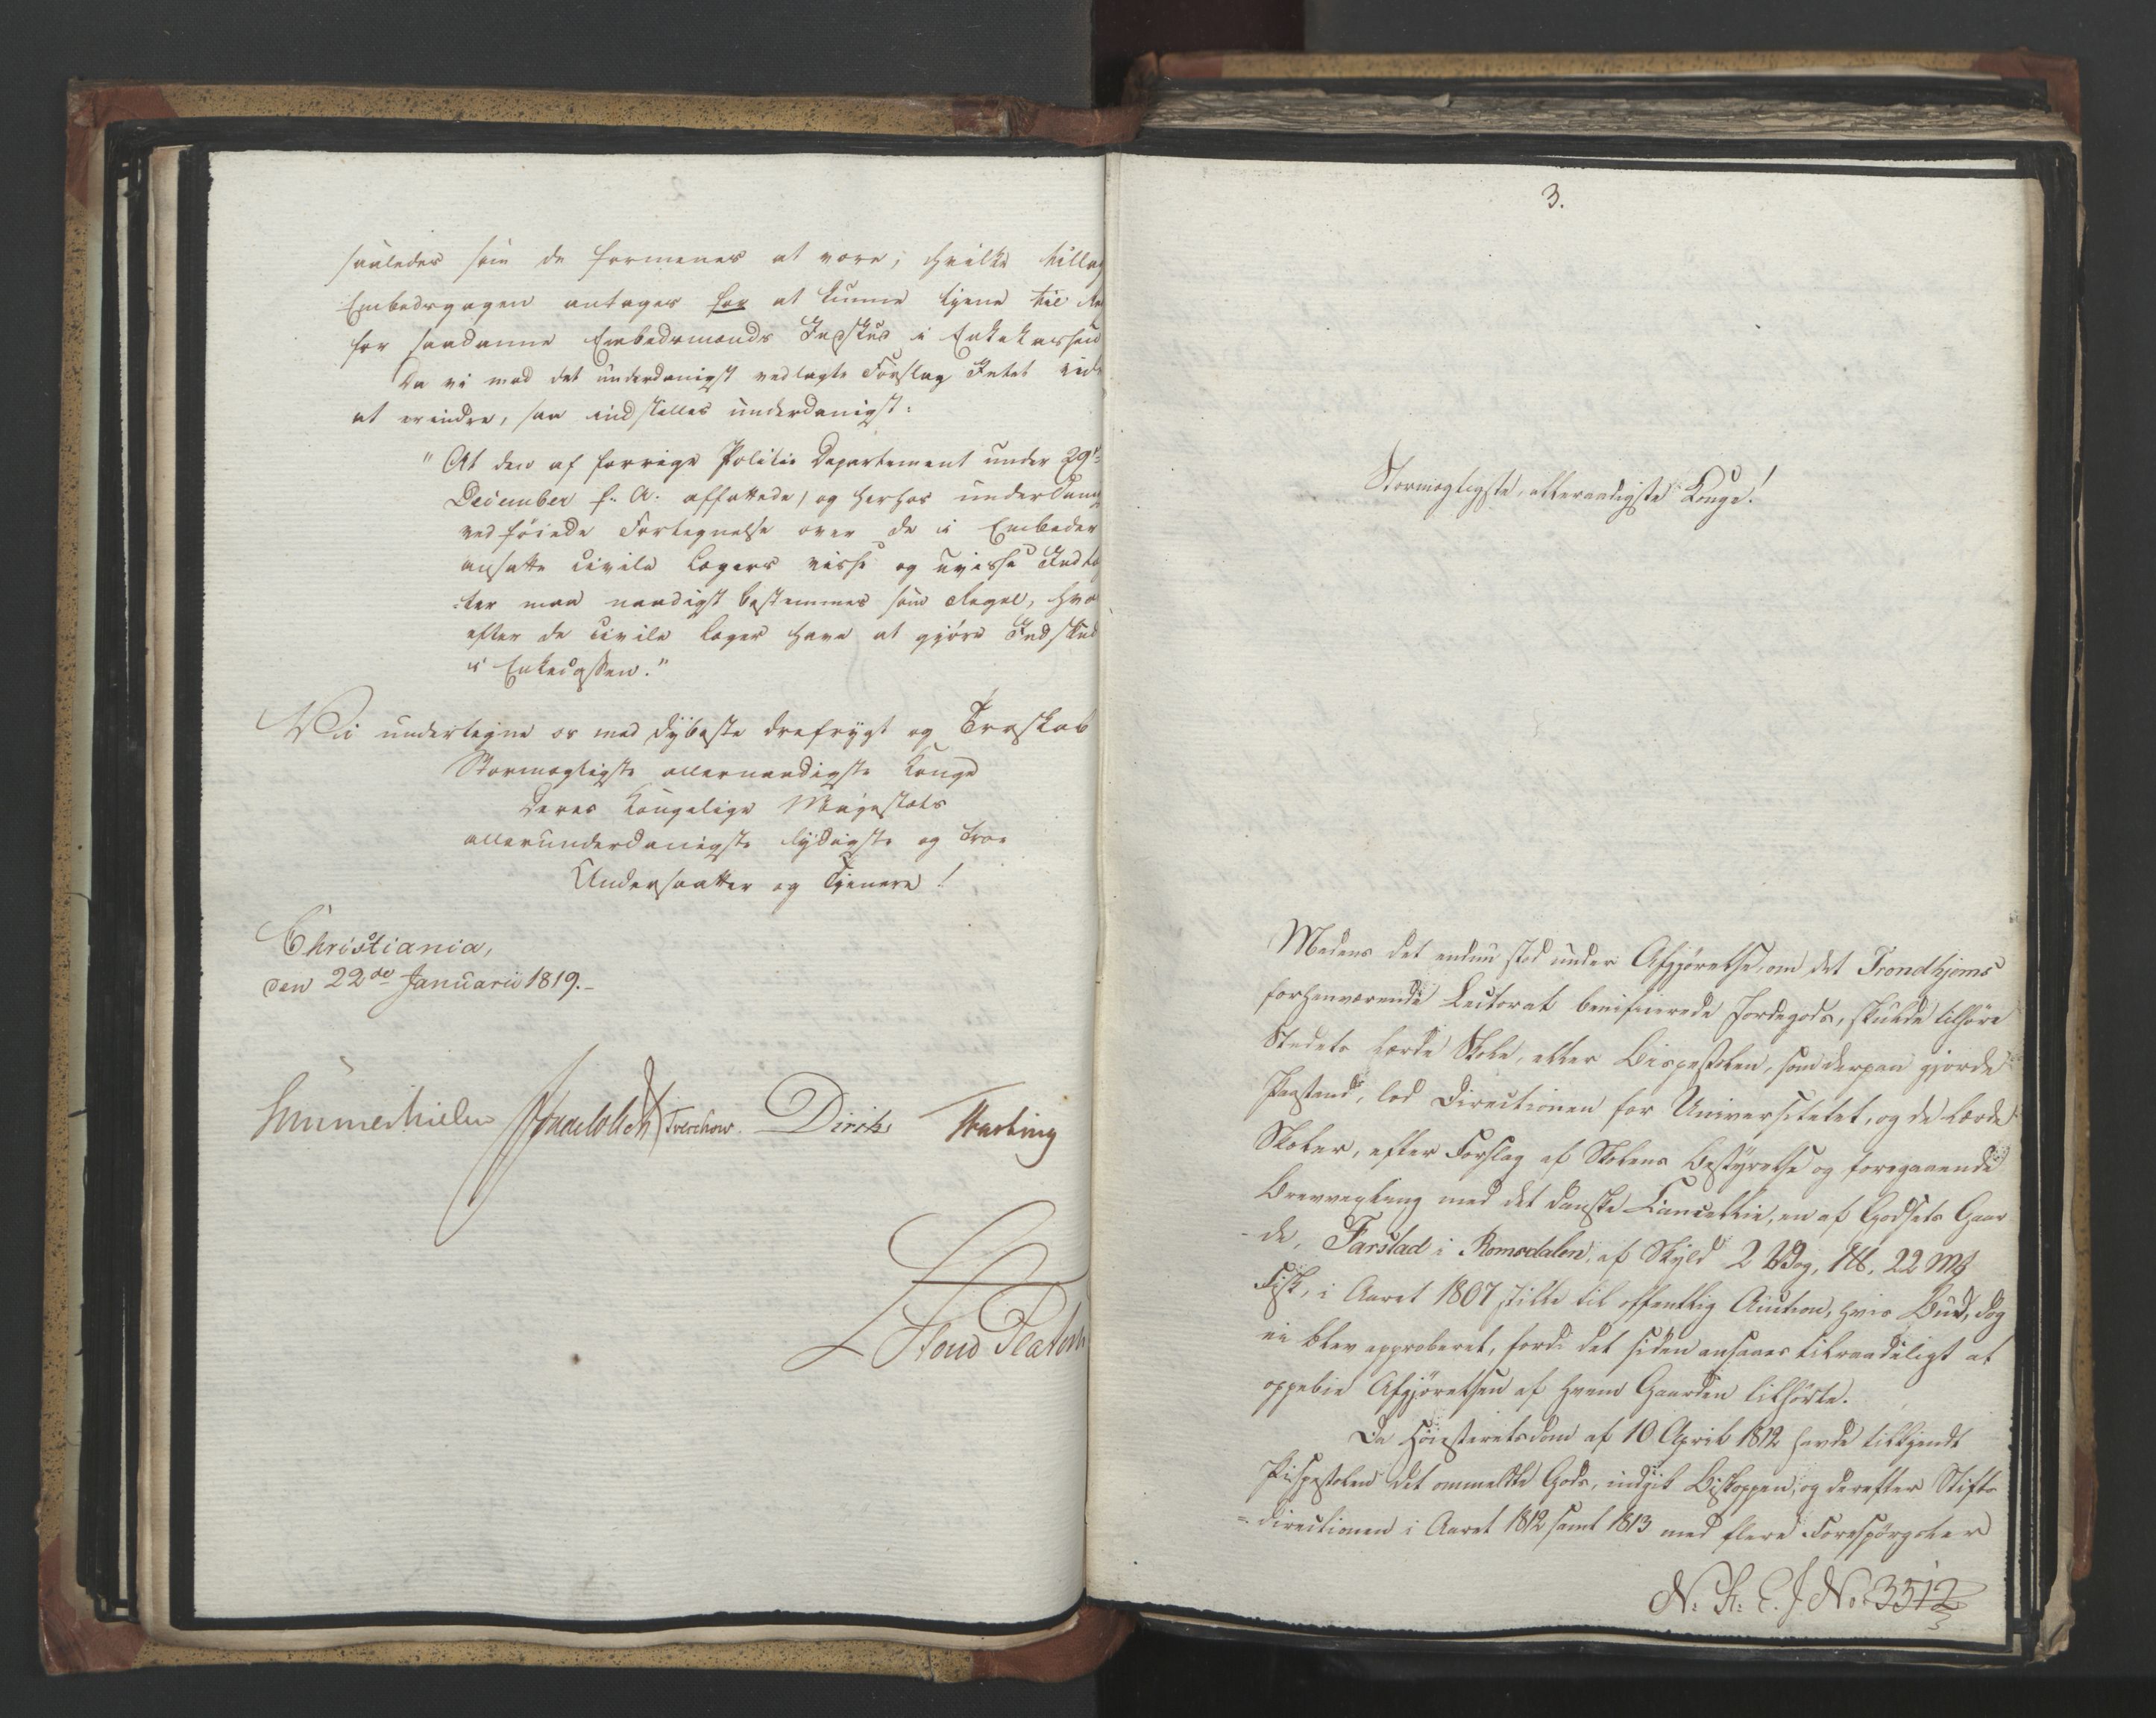 saaledes som de formenes at være; hvilke tillag
Embedsgagen antages før at kunne tjene til
for saadanne Embedsmænds Indskud i Enkekassen
Da vi mod det underdanigst vedlagte Forslag Intet vide
at erindre, saa indstilles underdanigst:
"At den af forrige Politie Departement under 29de
December f. A. affattede, og herhos underdan
vedføiede Fortegnelse over de i Embeder
ansatte civile Lægers visse og uvisse Indtæ
:ter maa naadigst bestemmes som Regel, hvor
efter de civile Læger have at gjøre Indskud
i Enkecassen."
Vi undertegne os med dybeste Ærefrygt og Troskab
Stormægtigste allernaadigste Konge
Deres Kongelige Majestæts
allerunderdanigste lydigste og troe
Undersaatter og Tjenere!
Christiania,
den 22de Januarii 1819.-
Sommerhielm Treschow. Diriks Hasting
3.
Stormægtigste, allernaadigste Konge!
Medens det endnu stod under Afgjørelse, om det Trondhjems
forhenværende Lectorat beneficierede Jordegods, skulde tilhøre
Stedets lærde Skole, eller Bispestolen, som derpaa gjorde
Paastand, lod Directionen for Universitetet, og de lærde
Skoler, efter Forslag af Skolens Bestyrelse og foregaaende
Brevvexling med det danske Cancellie, en af Godsets Gaar
-de, Farstad i Romsdalen, af Skyld 2 Vog, 1 ℔, 22 Mk
Fisk, i Aaret 1807 stille til offentlig Auction, hvis Bud, dog
ei blev approberet, fordi det siden ansaaes tilraadeligt at
oppebie Afgjørelsen af hvem Gaarden tilhørte.
Da Høiesteretsdom af 10 April 1812 havde tilkjendt
Bispestolen det ommeldte Gods, indgik Biskoppen, og derefter Stifts
=directionen i Aaret 1812 samt 1813 med flere Forespørgsler
N. R. C. J No 3512